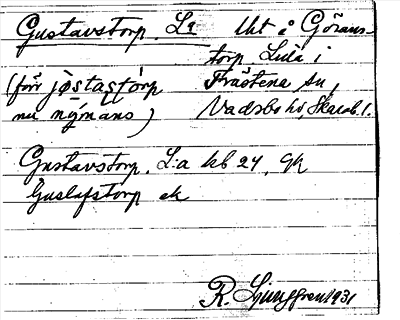 Gustavstorp. La Lht å Görans-
torp, Lilla i
(förr jöstastorp Frästena sn,
nu nymans) Vadsbo hd, Skarab. l.
Gustavstorp. L:a kb 24, gk
Gustafstorp ek
R. Ljunggren 1931